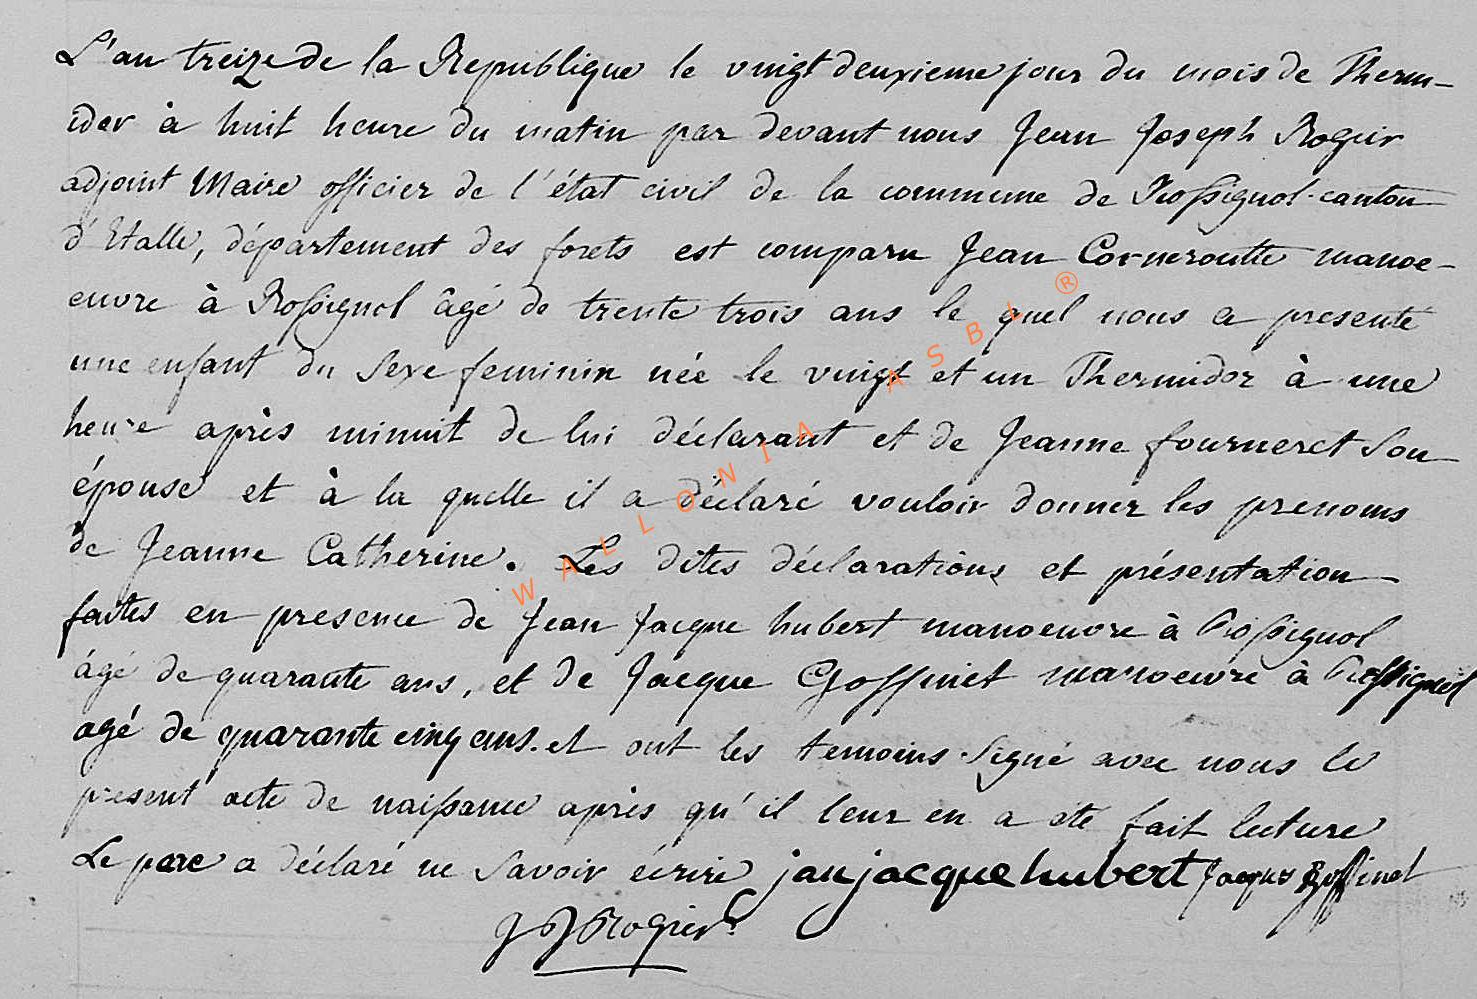 L'an treize de la Republique le vingt deuxieme jour du mois de Therm-
idor à huit heure du matin par devant nous Jean Joseph Rogier
adjoint Maire officier de l'état civil de la commune de Rossignol canton
d'Etalle, département des forets est comparu Jean Corneroutte manoe-
euvre à Rossignol âgé de trente trois ans le quel nous a presenté
une enfant du Sexe feminin née le vingt et un Thermidor à une
heure après minuit de lui déclarant et de Jeanne fourneret Son
épouse et à la quelle il a déclaré vouloir donner les prenoms
de Jeanne Catherine. Les dites déclarations et présentation
faites en presence de Jean Jacque hubert manoeuvre à Rossignol
âgé de quarante ans, et de Jacque Goffinet manoeuvre à Rossignol
agé de quarante cinq ans. et ont les temoins Signé avec nous le
present acte de naissance après qu'il leur en a été fait lecture
Le pere a déclaré ne Savoir écrire janjacquehubert Jacques Goffinet
J J Rogier
WALLONIA ASBL ®